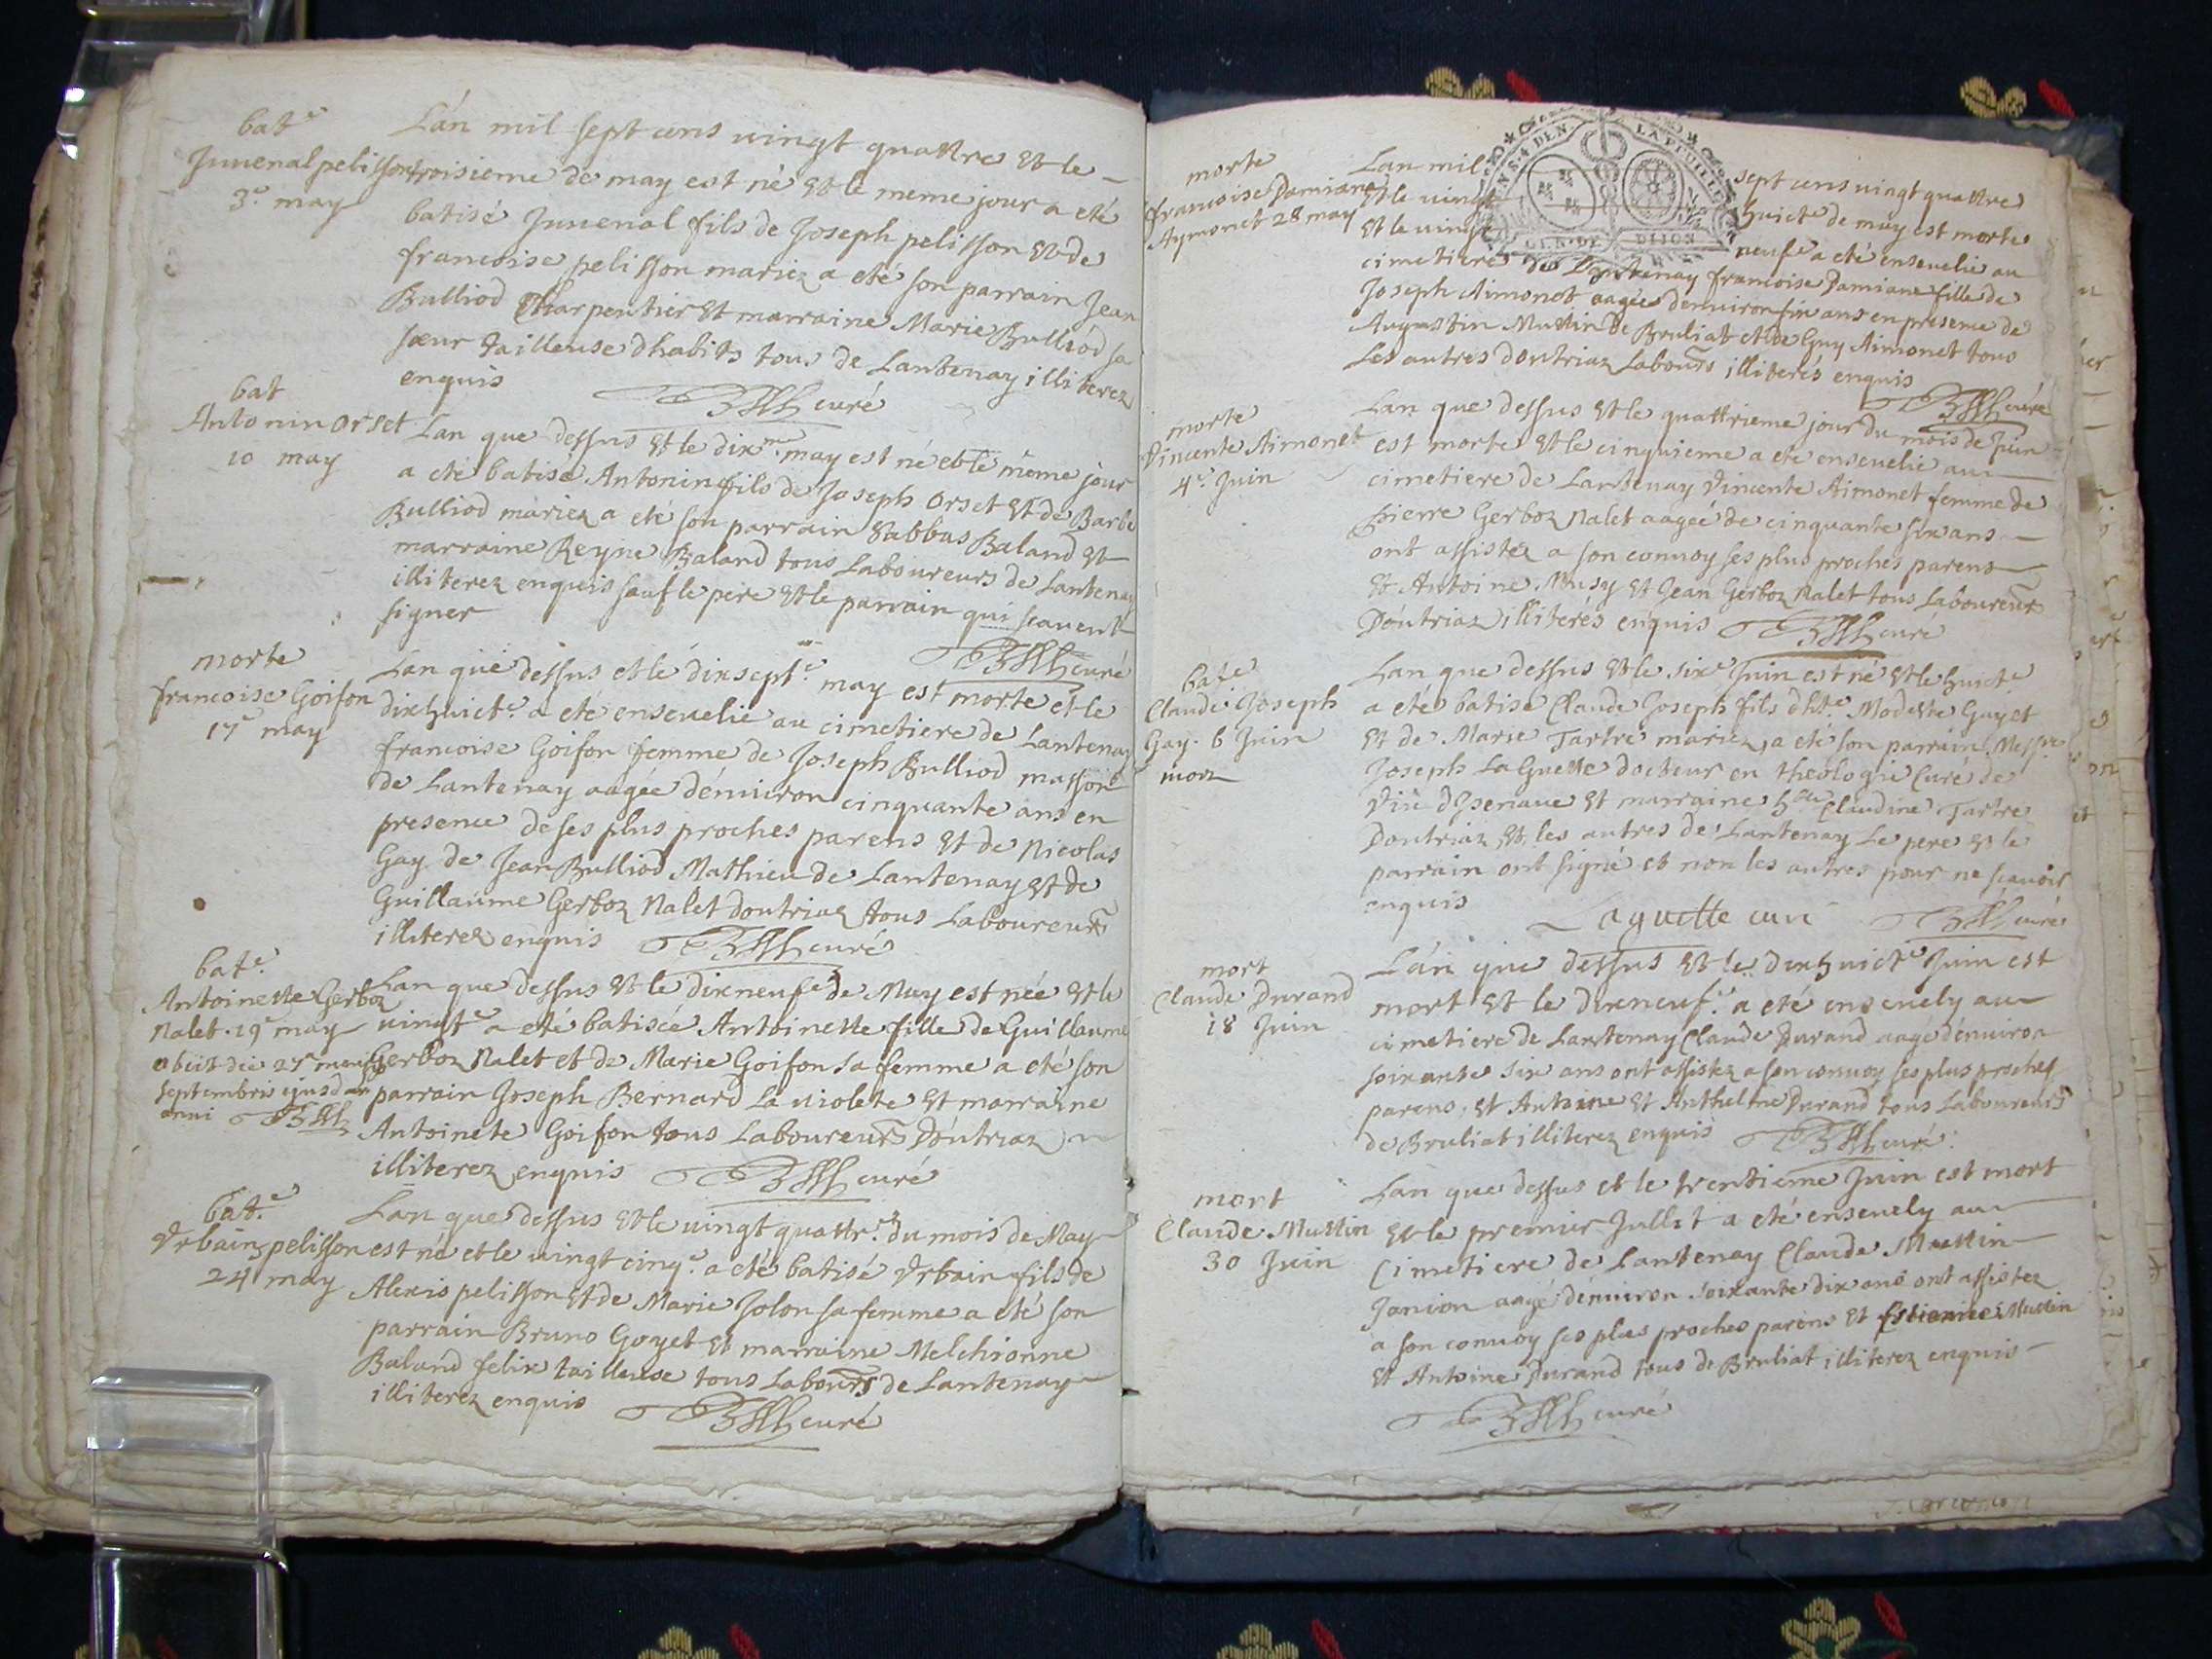 bat.e
Juuenal pelisson
3.e may
L'an mil sept cens vingt quattre et le
troisieme de may est né et le meme jour a eté
batisé Juuenal fils de Joseph pelisson et de
francoise pelisson mariez a eté son parrain Jean
Bulliod Charpentier et marraine Marie Bulliod sa
sœur tailleuse dhabits tous de Lantenay illiterez
enquis
curé
bat
Antonin Orset
10 may
Lan que dessus et le dix.me may est né et le meme jour
a eté batisé Antonin fils de Joseph Orset et de Barbe
Bulliod mariez a eté son parrain Sabbas Baland et
marraine Reyne Baland tous Laboureurs de Lantenay
illiterez enquis sauf le pere et le parrain qui scauent
signer
curé
morte
francoise Goifon
17e may
Lan que dessus et le dixsept.e may est morte et le
dixhuict.e a eté enseuelie au cimetiere de Lantenay
francoise Goifon femme de Joseph Bulliod masson
de Lantenay aagée dénuiron cinquante ans en
presence de ses plus proches parens et de Nicolas
Gay de Jean Bulliod Mathieu de Lantenay et de
Guillaume Gerboz Nalet doutriaz tous Laboureurs
illiterez enquis
curé
bat.e
Antoinette Gerboz
Nalet. 19e may
obiit die 27
septembris ejusd
anni
Lan que dessus et le dixneufe de May est née et le
vingt.e a eté batisée Antoinette fille de Guillaume
Gerboz Nalet et de Marie Goifon sa femme a eté son
parrain Joseph Bernard La violete et marraine
Antoinete Goifon tous Laboureurs Doutriaz
illiterez enquis
curé
bat.e
Vrbain pelisson
24 may
Lan que dessus et le vingt quattr.e du mois de May
est né et le vingt cinq.e a eté batisé Vrbain fils de
Alexis pelisson et de Marie Jolon sa femme a eté son
parrain Bruno Goyet et marraine Melchionne
Baland felix tailleuse tous Labours de Lantenay
illiterez enquis
curé
EN S. 4 DEN. LA FEUILLE
GEN. DE DIJON
morte
francoise Damiane
Aymonet 28 may
Lan mil sept cens vingt quattre
et le vingt huict.e de may est morte
et le vingt neuf.e a eté enseuelie au
cimetiere de Lantenay francoise Damiane fille de
Joseph Aimonet aagée denuiron six ans en presence de
Augustin Muttin de Bruliat et de Guy Aimonet tous
Les autres doutriaz Labours illiterés enquis
curé
morte
Vincente Aimonet
4.e Juin
Lan que dessus et le quattrieme jour du mois de Juin
est morte et le cinquieme a eté enseuelie au
cimetiere de Lantenay Vincente Aimonet femme de
pierre Gerboz Nalet aagée de cinquante six ans
ont assistez a son conuoy ses plus proches parens
et Antoine Musy et Jean Gerboz Nalet tous Laboureurs
Doutriaz illiterés enquis
curé
bat.e
Claude Joseph
Gay. 6 Juin
mort
Lan que dessus et le six.e Juin est né et le huict.e
a eté batisé Claude Joseph fils dht.e Modeste Guyet
et de Marie Tartre mariez, a eté son parrain Messre
Joseph La Guette docteur en theologie Curé de
Vieu dYsenaue et marraine h.te Claudine Tartre
Doutriaz et les autres de Lantenay Le pere et le
parrain ont signé et non les autres pour ne scauoir
enquis
Laguette curé
curé
mort
Claude Durand
18 Juin
L'an que dessus et le dixhuict.e Juin est
mort et le dixneuf.e a eté enseuely au
cimetiere de Lantenay Claude Durand aagé dénuiron
soixante six ans ont assistez a son conuoy ses plus proches
parens, et Antoine et Anthelme Durand tous Laboureurs
de Bruliat illiterez enquis
curé
mort
Claude Muttin
30 Juin
Lan que dessus et le trentieme Juin est mort
et le premier Jullet a eté enseuely au
Cimetiere de Lantenay Claude Muttin
Janion aagé dénuiron soixante dix ans ont assistez
a son conuoy ses plus proches parens et Muttin
et Antoine Durand tous de Bruliat illiterez enquis
curé